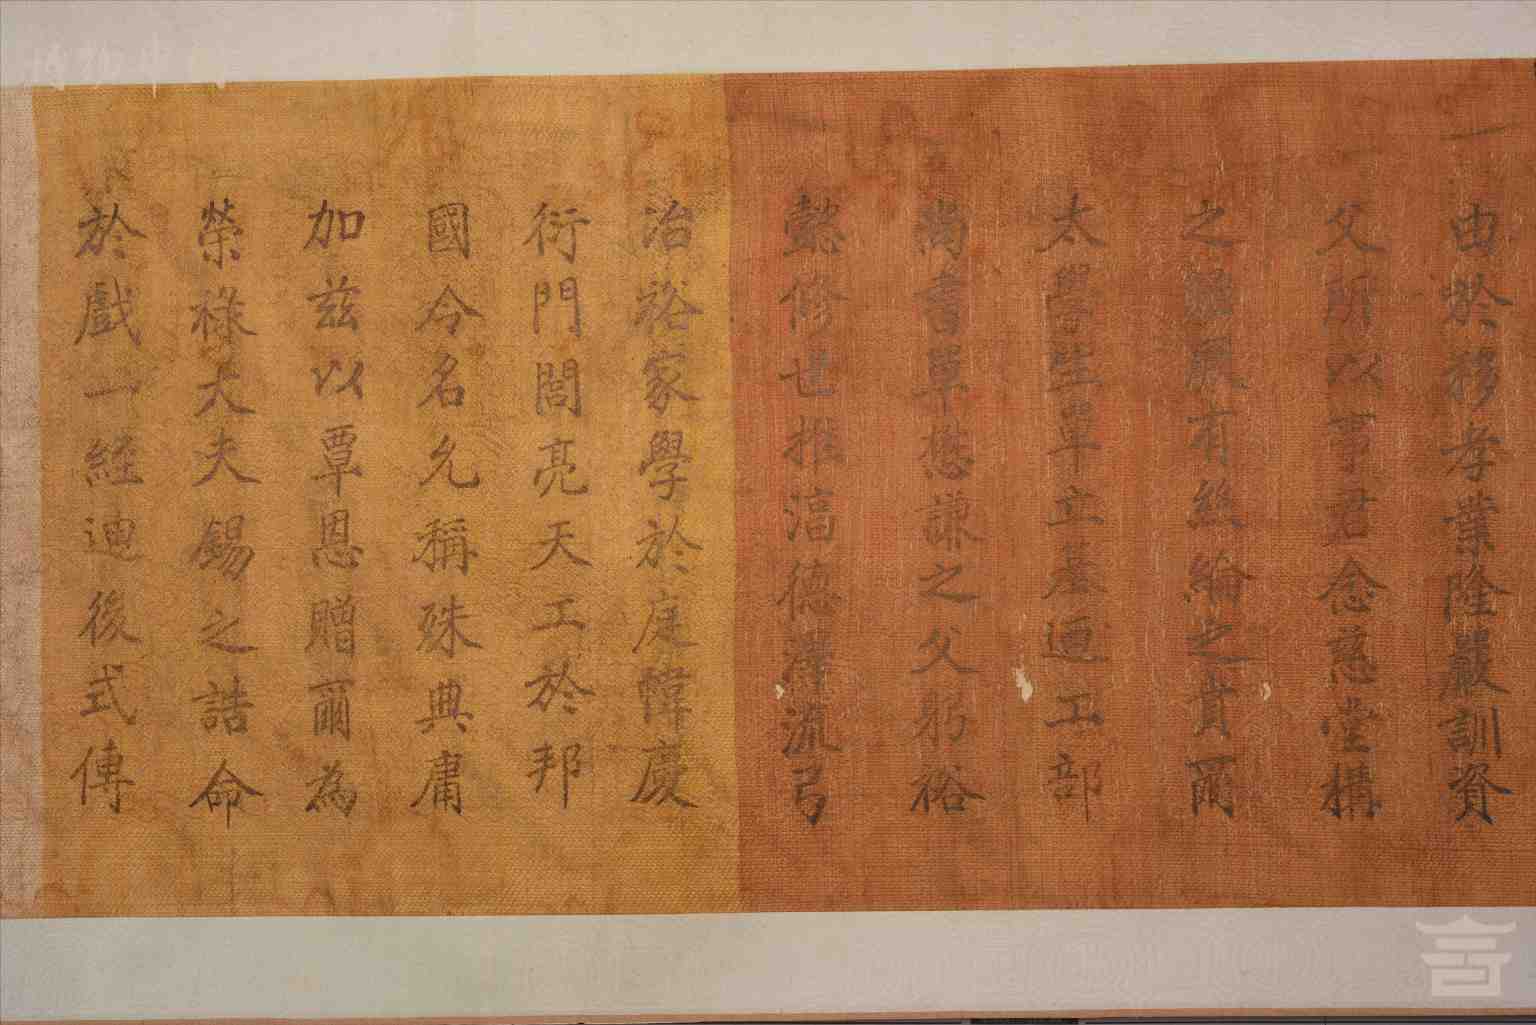 由於移孝業隆嚴訓資
父所以事君念慈堂構
之貽厥有絲綸之賁爾
太學生單立基迺工部
尚書單懋謙之父躬裕
懿修世推滈德澤流弓
治裕家學於庭幃慶
衍門閭亮天工於邦
國令名允稱殊典庸
加茲以覃恩贈爾為
榮祿大夫錫之誥命
於戲一經迪後式傳